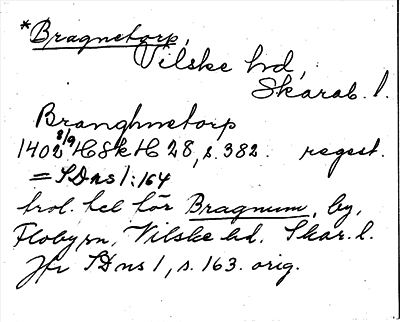 *Bragnetorp,
Vilske hd,
Skarab. l.
Branghnetorp
1402 8/9 HSkH 28, s. 382. regest.
= SDns 1:164
trol. fel för Bragnum, by,
Floby sn, Vilske hd, Skar. l.
Jfr SDns 1, s. 163. orig.